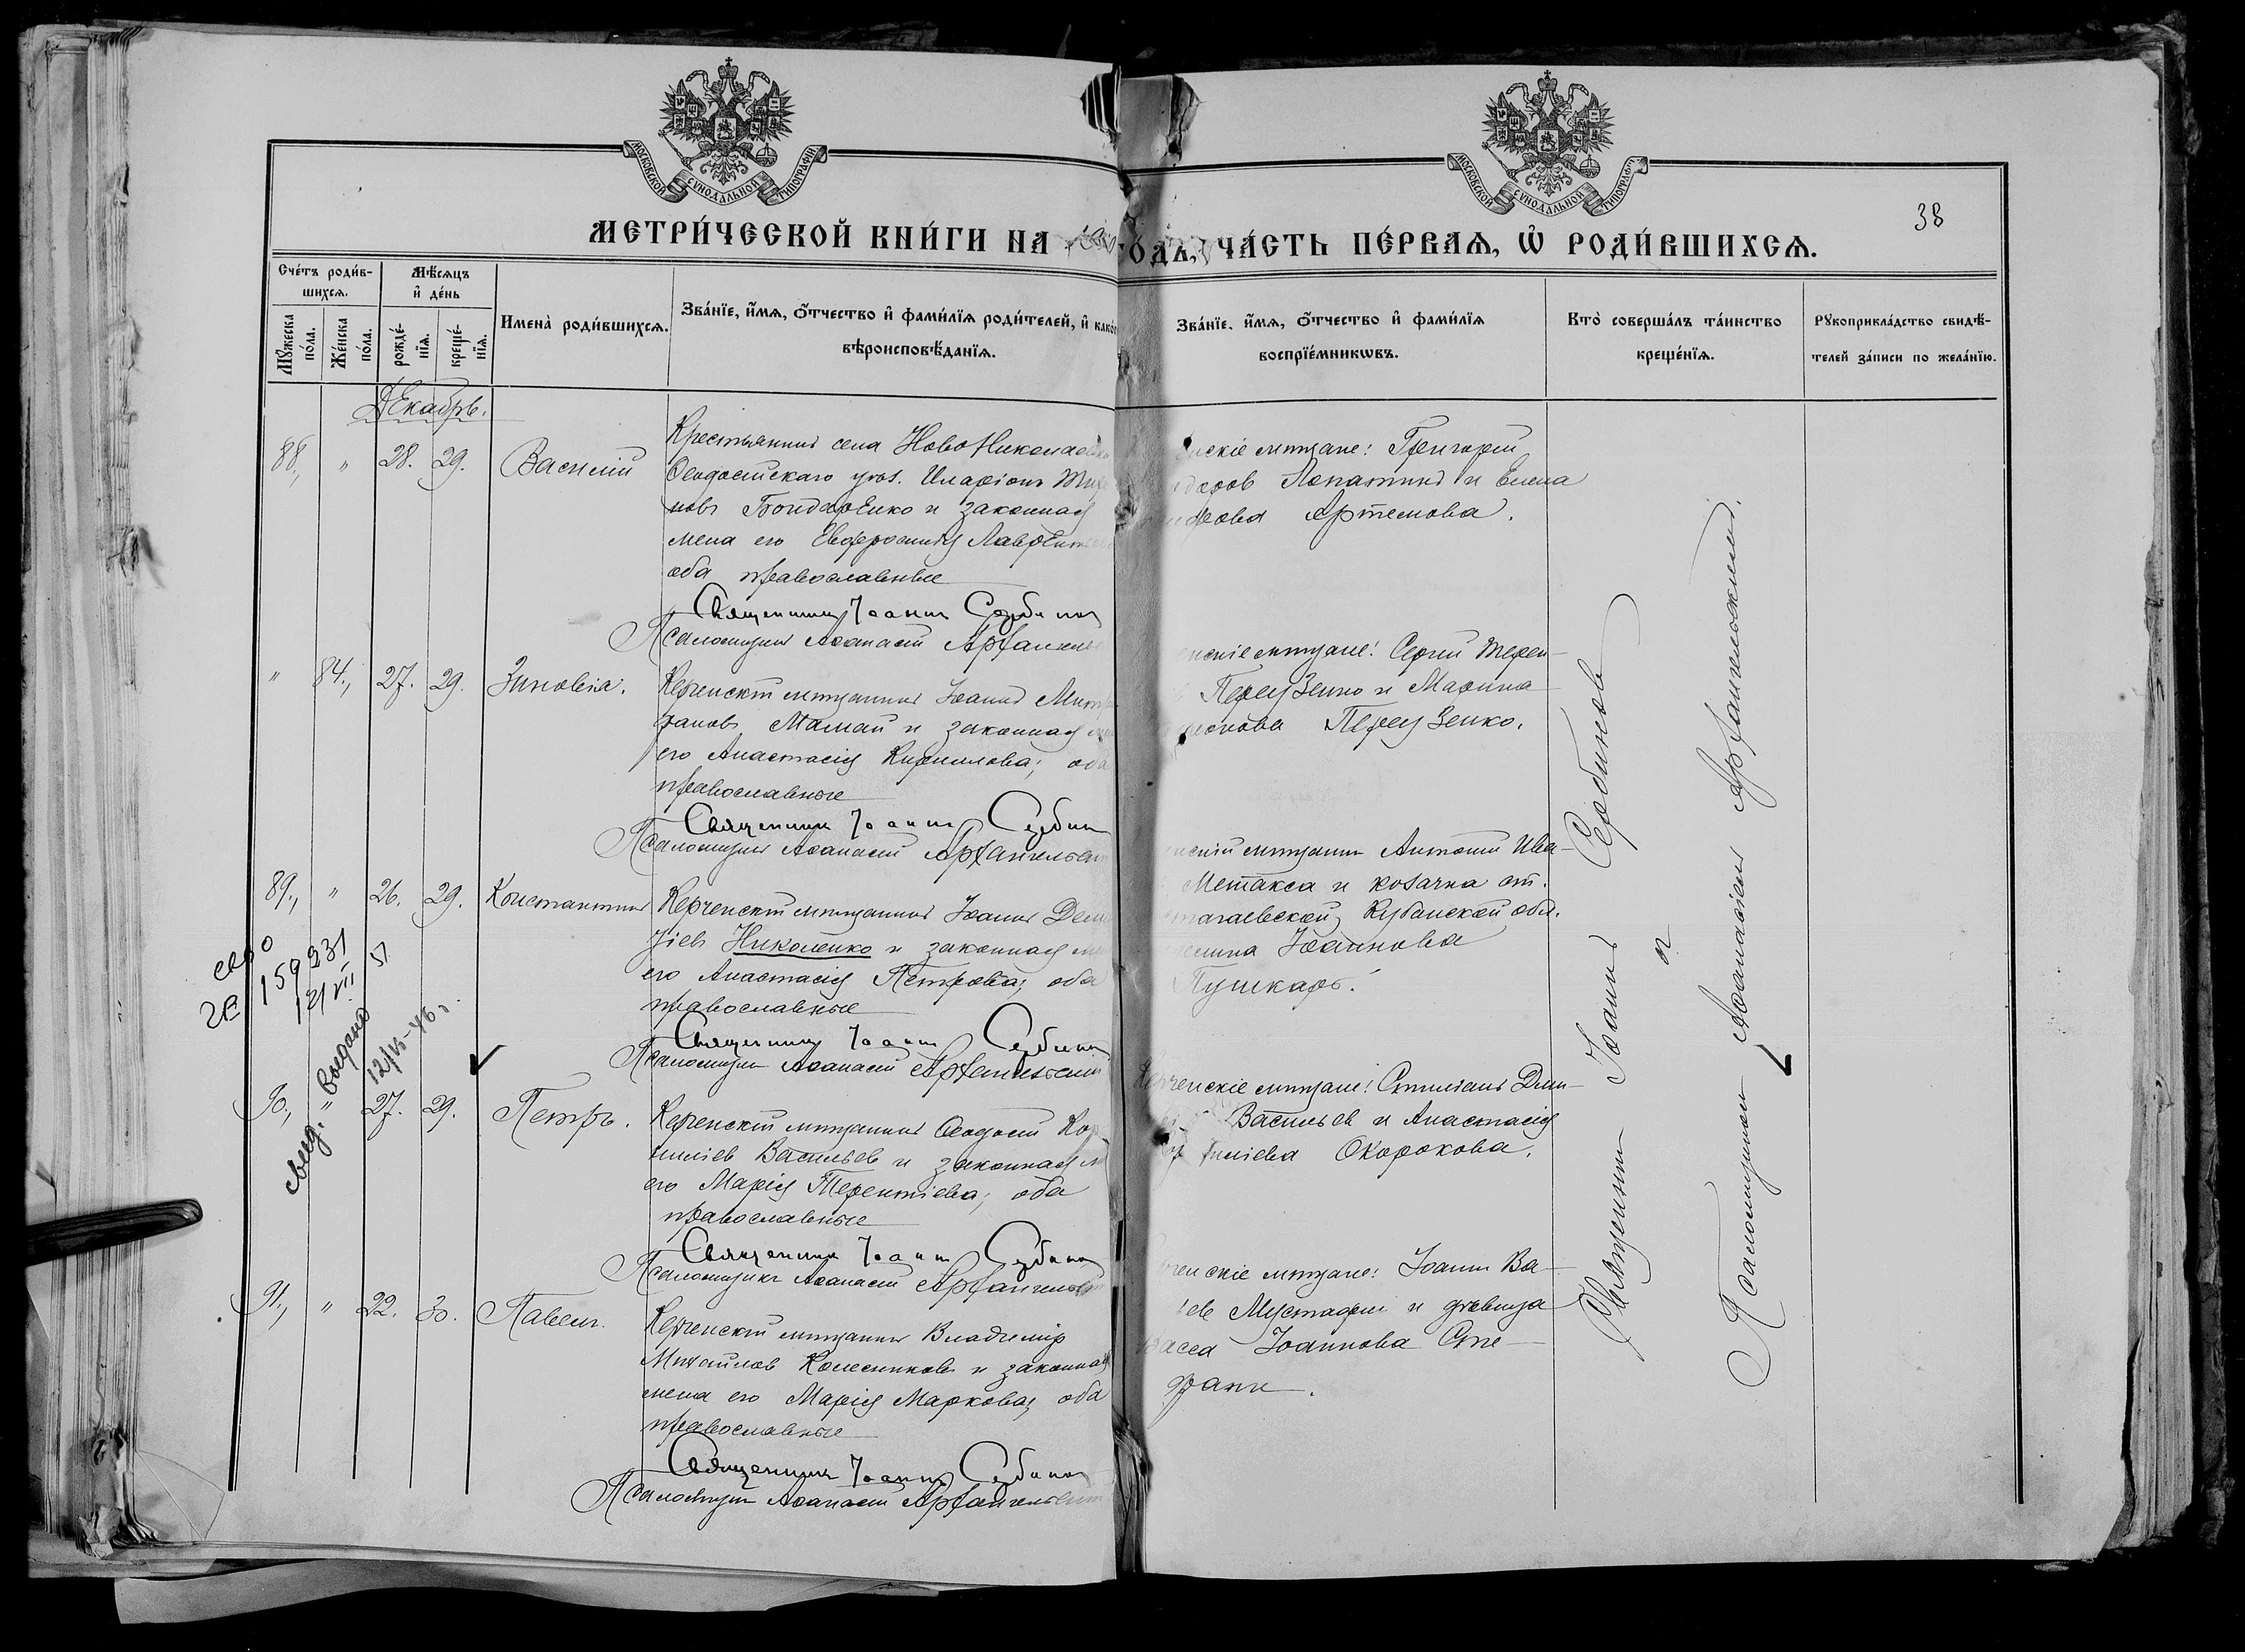 МОСКОВСКОЙ СУНОДАЛЬНОЙ ТИПОГРАФІИ
МОСКОВСКОЙ СУНОДАЛЬНОЙ ТИПОГРАФІИ
38
МЕТРИ́ЧЕСКОЙ КНИ́ГИ НА
ГО́ДЪ, ЧА́СТЬ ПЕ́РВАѦ, Ѡ҆ РОДИ́ВШИХСѦ.
Сче́тъ роди́в-
шихсѧ.
Мꙋ́жеска
по́ла.
Же́нска
по́ла.
Мѣ́сѧцъ
и҆ де́нь
рожде́-
нїѧ.
креще́-
нїѧ.
Имена̀ роди́вшихсѧ.
Зва́нїе, и҆́мѧ, ѻ҆́тчество и҆ фами́лїѧ роди́телей, и҆ како́
вѣроисповѣ́данїѧ.
Зва́нїе, и҆́мѧ, ѻ҆́тчество и҆ фами́лїѧ
воспрїе́мникѡвъ.
Кто̀ соверша́лъ та́инство
креще́нїѧ.
Рꙋкоприкла́дство свидѣ́-
телей за́писи по жела́нїю.
Декабрь.
88., " 28. 29. Василій
Крестьянинъ села Ново Николаев
Ѳеодосійскаго уѣз. Иларіонъ
новъ Бондаренко и законная
жена его Евфросинія Лаврент
оба православные
Священникъ Іоаннъ Сербинов
Псаломщикъ Аѳанасій Архангельс
нскіе мѣщане: Григорій
Лопатинъ и Елена
Артемова.
" 84., 27. 29. Зиновія.
Керченскій мѣщанинъ Іоаннъ Митро
фановъ Мамай и законная
его Анастасія Кириллова; оба
православные
Священникъ Іоаннъ Сербин
Псаломщикъ Аѳанасій Архангельск
енскіе мѣщане: Сергій Терен-
Переузенко и Марина
Переузенко.
89., " 26. 29. Константинъ
Керченскій мѣщанинъ Іоаннъ Дем
Николенко и законная
его Анастасія Петрова; оба
православные
Священникъ Іоаннъ Сербин
Псаломщикъ Аѳанасій Архангельскій
енскій мѣщанинъ Антоній Ива-
Метакса и козачка ст.
Кубанской обл.
Іоаннова
Пушкарь.
159231
12/VII 51
свид. выдано
12/VI-46 г.
90., " 27. 29. Петръ.
Керченскій мѣщанинъ Ѳеодосій Кор
ниліев Васильев и законная
его Марія Терентіева; оба
православные
Священникъ Іоаннъ Сербинов
Псаломщикъ Аѳанасій Архангельск
Керченскіе мѣщане: Стиліанъ Дим-
Васильев и Анастасія
Корниліева Окорокова.
91., " 22. 30. Павелъ.
Керченскій мѣщанинъ Владиміръ
Михайлов Колесников и законная
жена его Марія Маркова; оба
православные
Священникъ Іоаннъ Сербинов
Псаломщикъ Аѳанасій Архангельскій
ченскіе мѣщане: Іоаннъ Ва-
ьев Мустафи и дѣвица
Васса Іоаннова Сте-
фани.
Священникъ Іоаннъ Сербинов
и
Псаломщикъ Аѳанасій Архангельскій.